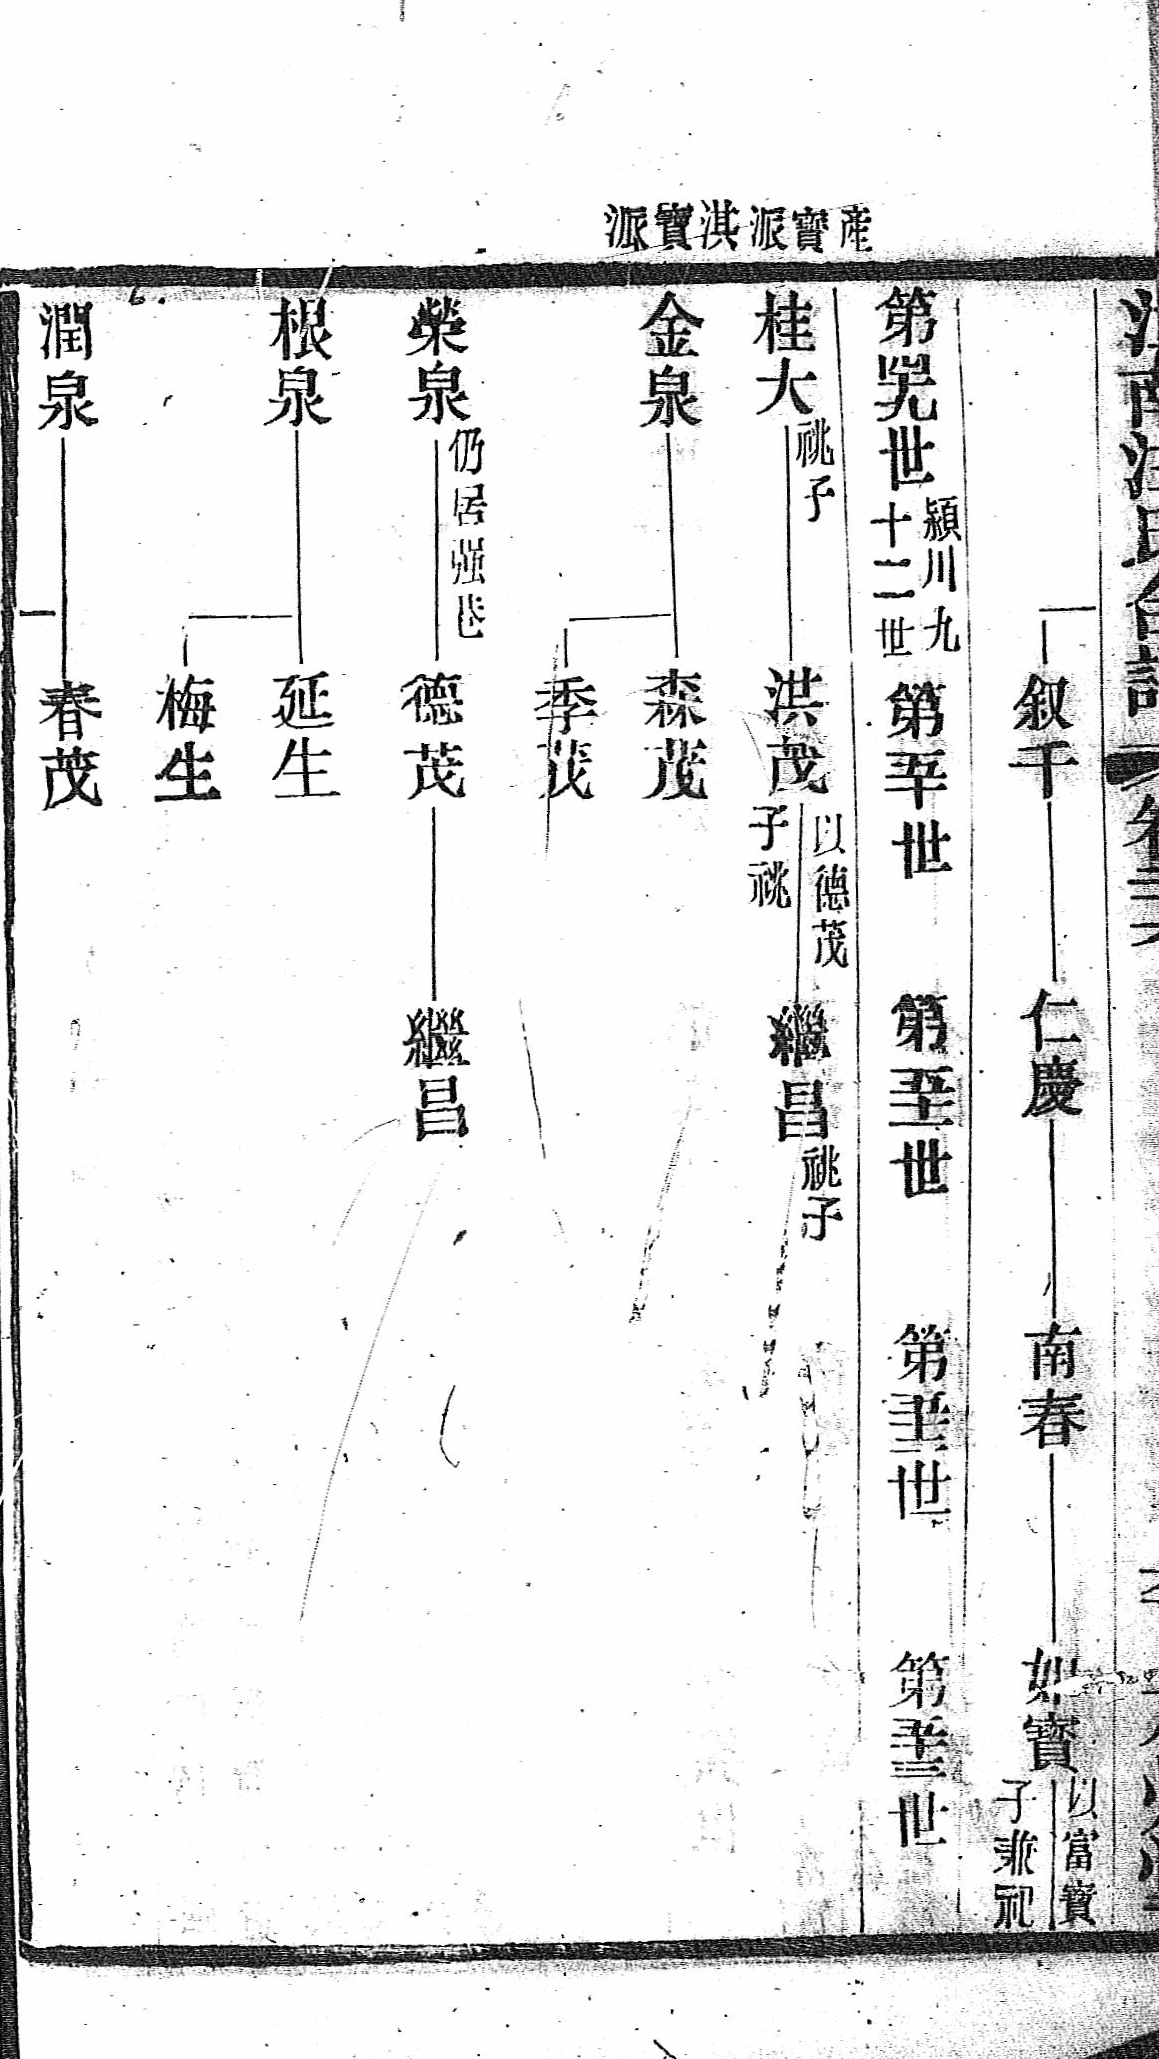 產寶派淇寶派
叙千
仁慶
南春
如寶
以富寶
子兼祀
第卌九世
潁川九
十二世
第五十世
第五十一世
第五十二世
第五十三世
桂大
祧子
洪茂
以德茂
子祧
繼昌
祧子
金泉
森茂
季茂
榮泉
仍居強巷
德茂
繼昌
根泉
延生
梅生
潤泉
春茂